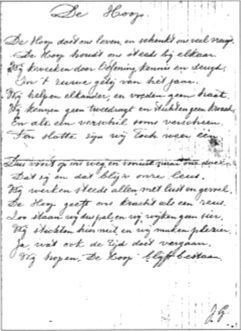 De Hoop.
De Hoop doet ons leven, en schenkt ons veel vreugd
De Hoop houdt ons steeds bij elkaar.
Wij kweeken door Oefening kennis en deugd,
In 't ruwe getij van het jaar.
Wij helpen elkander, en voeden geen haat,
Wij kennen geen tweedragt en stichten geen kwaad
En als een verschil soms verscheen
Ten slotte zijn wij toch weer één
Dus voort op ons weg en
Dat zij en dat blijv' onze leus.
Wij werken steeds allen met lust en gevoel,
De Hoop geeft ons kracht als een reus.
Zoo staan wij en wij wijken geen zier,
Wij stichten hier nut en wij maken plezier.
Ja, wat ook de tijd doet vergaan,
Wij hopen, De Hoop blijft bestaan
J. G.